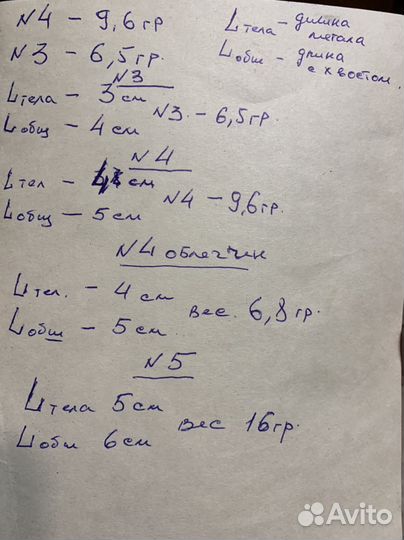 N4 – 9,6гр
N3 – 6,5гр.
Lтела – длина метала
Lобщ – длина с хвостом.
N3
Lтела – 3 см
Lобщ – 4 см
N3 – 6,5гр.
N4
Lтел – см
Lобщ – 5 см
N4 – 9,6гр.
N4 облегчик
Lтел. – 4 см
Lобш – 5 см
вес. 6,8гр.
N5
Lтела 5см
Lобш 6см
вес 16гр.
Avito